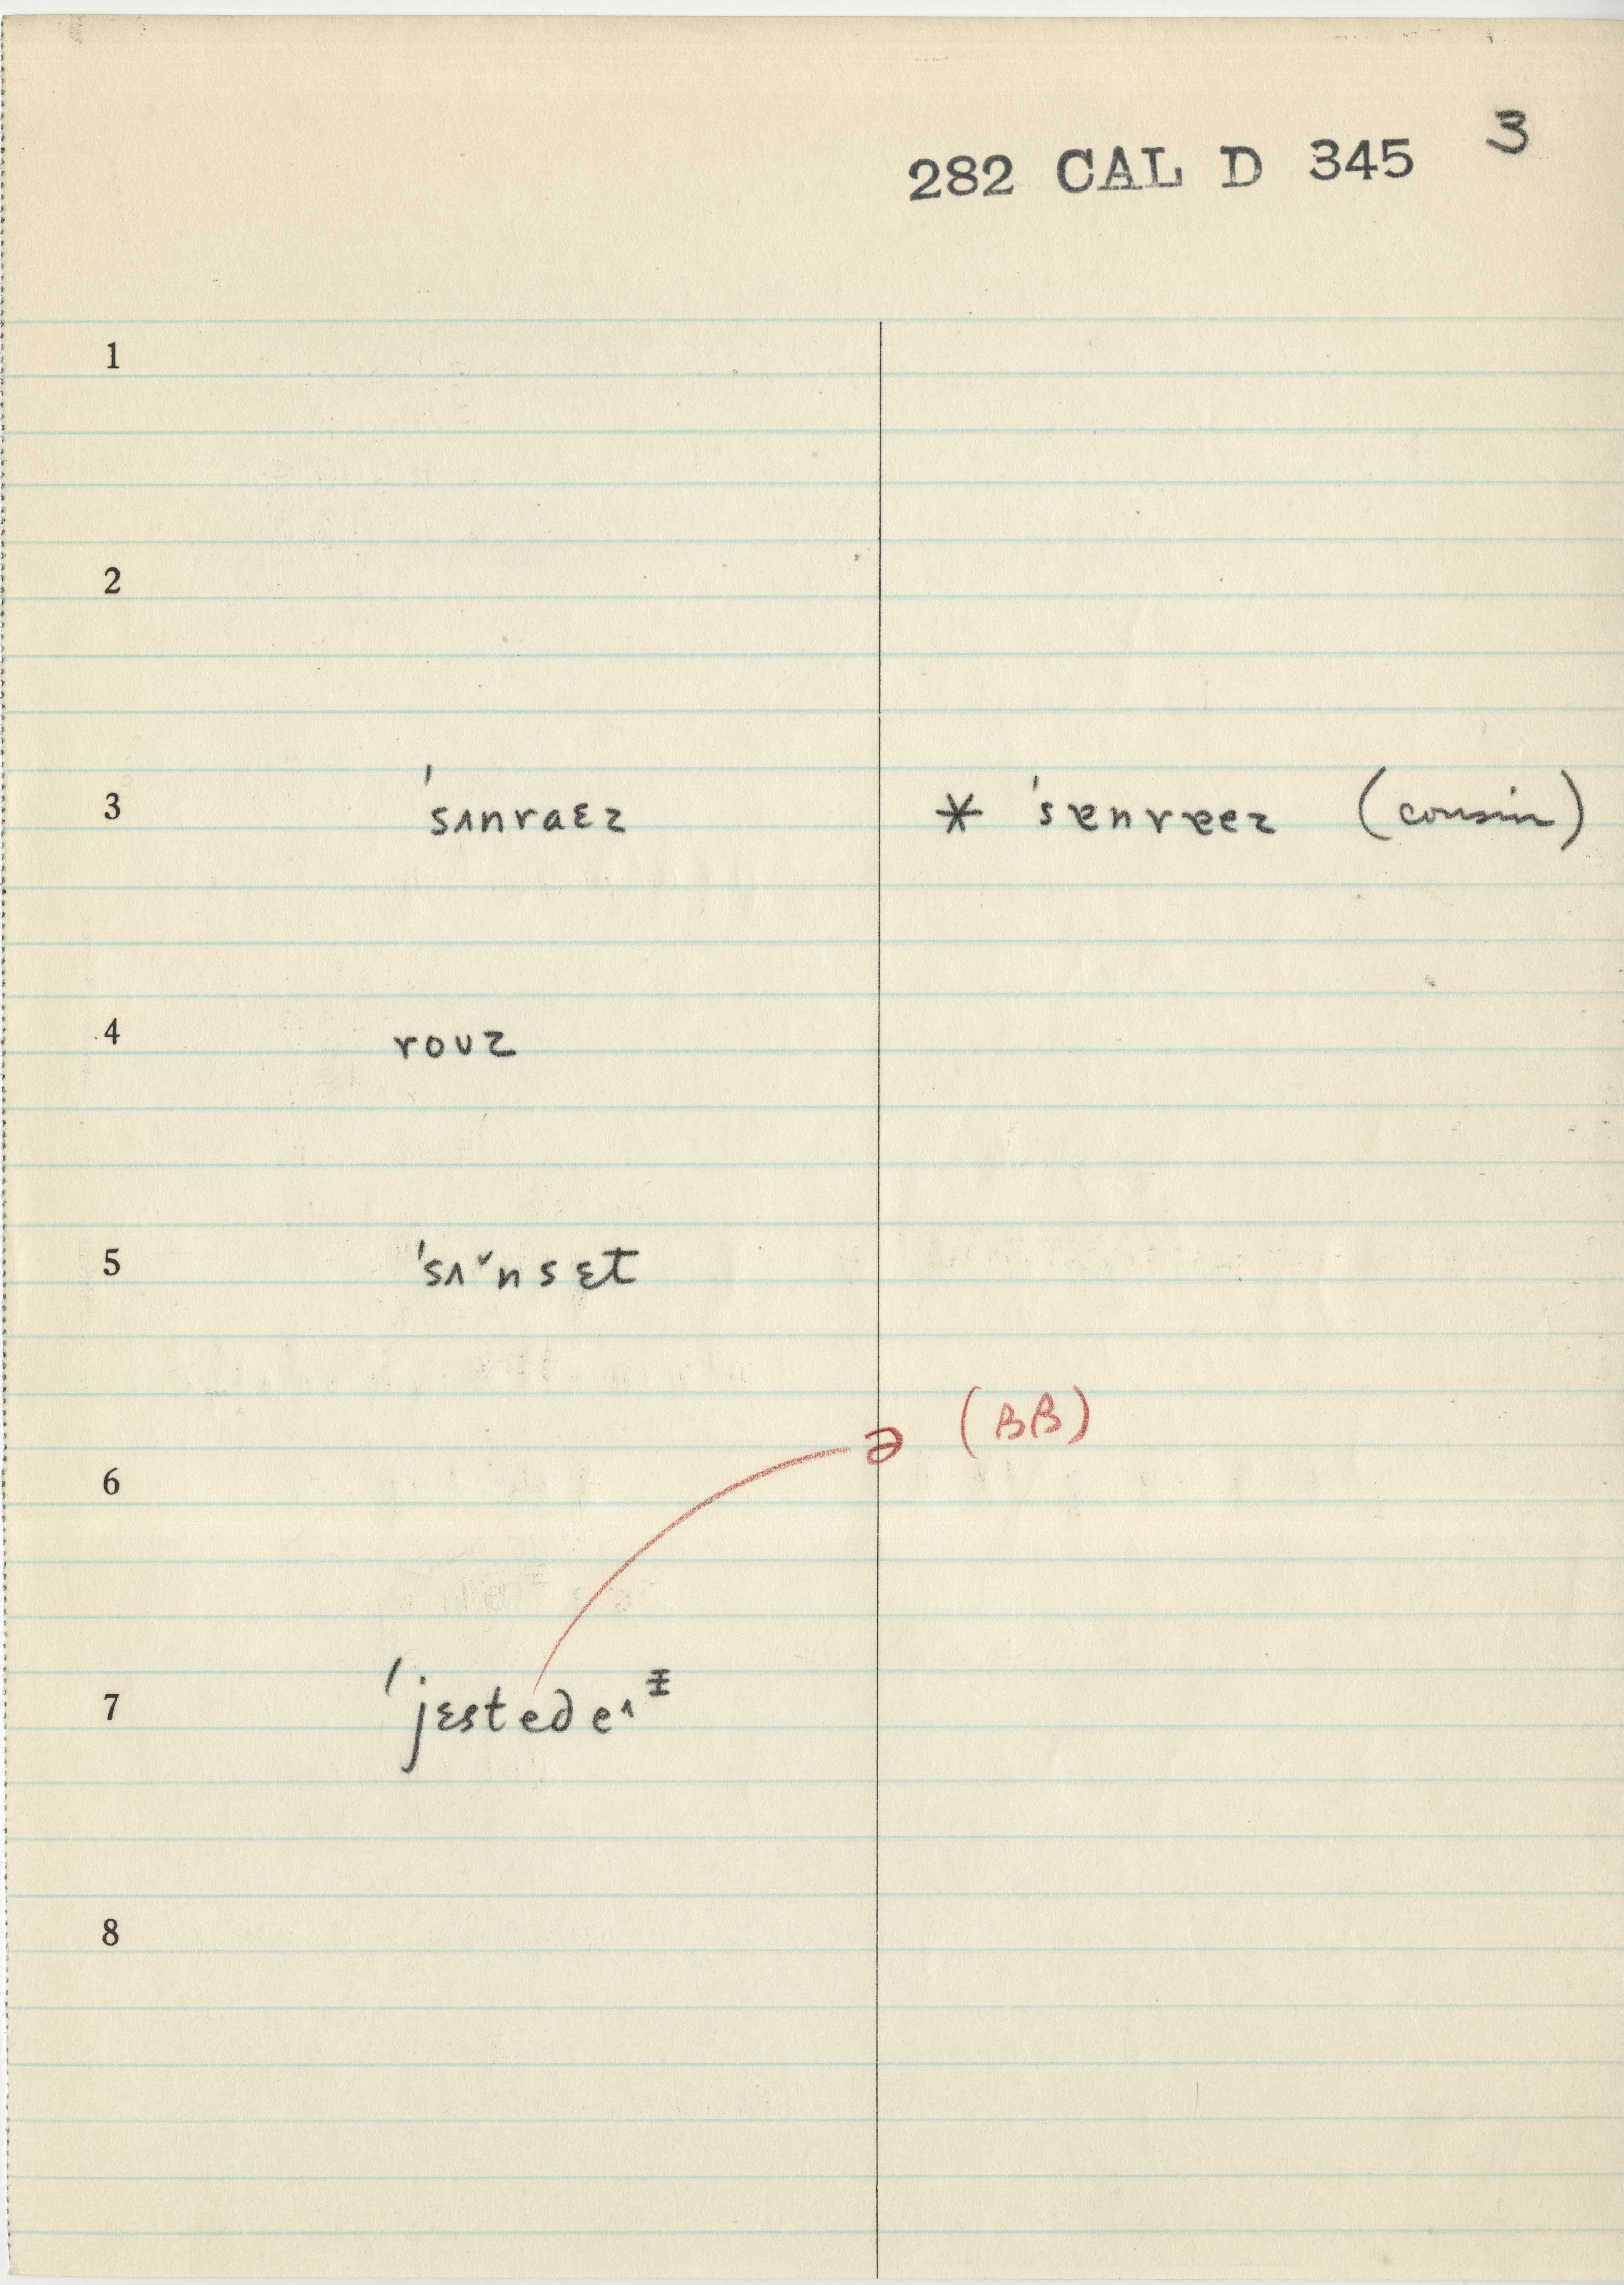 282 CAL D 345 3
1
2
3 ˈsʌnraɛz * ˈsɐnrɐez (cousin)
4 roʊz
5 ˈsʌˇnsɛt
ə (BB)
6
7 ˈjɛstedeᶺᶧ
8